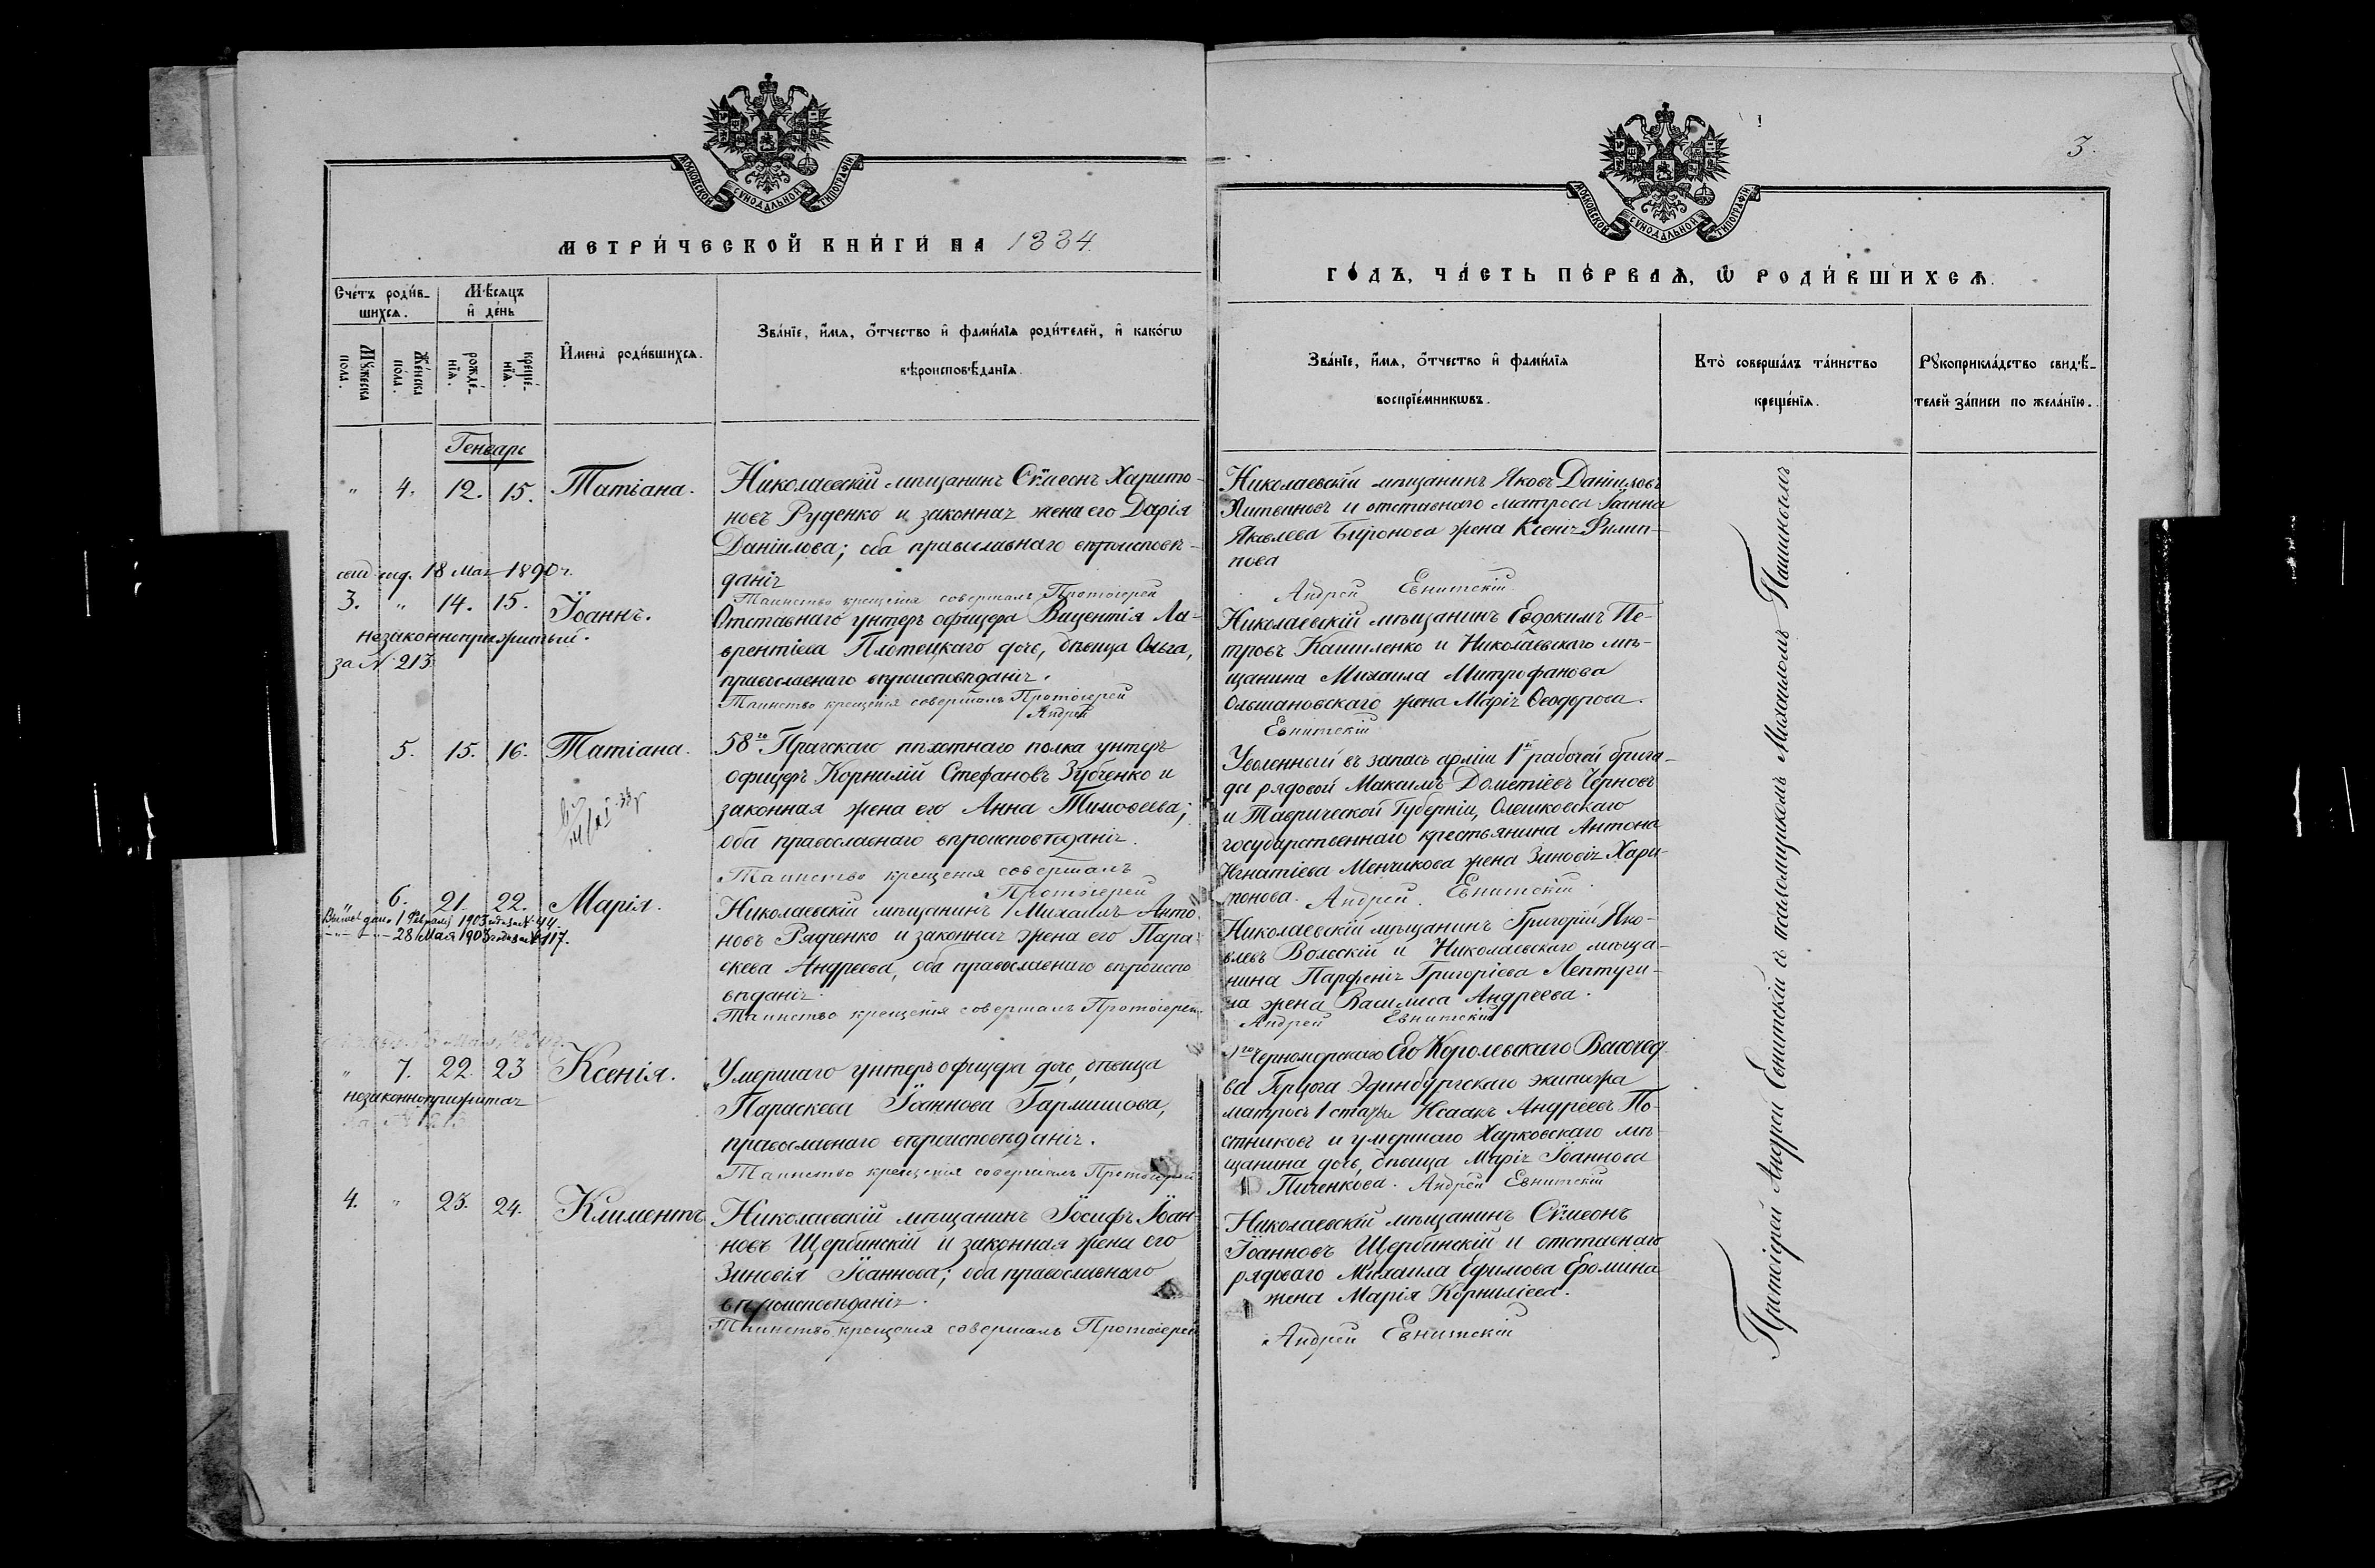 МОСКОВСКОЙ СѴНОДАЛЬНОЙ ТИПОГРАФІИ
МЕТРИ́ЧЕСКОЙ КНИ́ГИ НА 1884.
Сче́тъ роди́в-
шихсѧ.
Мѣ́сѧцъ
и҆ де́нь
Мꙋ́жеска
пола.
Же́нска
по́ла.
рожде́-
нїѧ.
креще́-
нїѧ.
И҆мена̀ роди́вшихсѧ.
Зва́нїе, и҆́мѧ, о҆́тчество и҆ фами́лїѧ роди́телей, и҆ како́гѡ
вѣроисповѣ́данїѧ.
Генварь
" 4. 12. 15. Татіана.
Николаевскій мѣщанинъ Сѷмеонъ Харито-
новъ Руденко и законная жена его Дарія
Даніилова; оба православнаго вѣроисповѣ-
данія
Таинство крещенія совершалъ Протоіерей
18 Мая 1890 г.
3. " 14. 15. Іоаннъ.
незаконноприжитый.
за № 213
Отставнаго унтеръ офицера Викентія Ла-
врентіева Плотецкаго дочь, дѣвица Ольга,
православнаго вѣроисповѣданія.
Таинство крещенія совершалъ Протоіерей
Андрей
5. 15. 16. Татіана.
58го Прагскаго пѣхотнаго полка унтеръ
офицеръ Корнилій Стефановъ Зубченко и
законная жена его Анна Тимоѳеева;
оба православнаго вѣроисповѣданія.
Таинство крещенія совершалъ
Протоіерей
6. 21. 22. Марія.
дано 1 Февраля 1903 года за № 44.
28 Мая 1903 года за № 117.
Николаевскій мѣщанинъ Михаилъ Анто-
новъ Рядченко и законная жена его Пара-
скева Андреева, оба православнаго вѣроиспо
вѣданія.
Таинство крещенія совершалъ Протоіерей
" 7. 22. 23 Ксенія.
незаконноприжитая
Умершаго унтеръ офицера дочь, дѣвица
Параскева Іоаннова Гармашова,
православнаго вѣроисповѣданія.
Таинство крещенія совершалъ Протоіерей
4. " 23. 24. Климентъ
Николаевскій мѣщанинъ Іосифъ Іоан-
новъ Щербинскій и законная жена его
Зиновія Іоаннова; оба православнаго
вѣроисповѣданія.
Таинство крещенія совершалъ Протоіерей
3.
МОСКОВСКОЙ СѴНОДАЛЬНОЙ ТИПОГРАФІИ
ГО́ДЪ, ЧА́СТЬ ПЕ́РВАѦ, Ѡ҆ РОДИ́ВШИХСѦ.
Зва́нїе, и҆́мѧ, о҆́тчество и҆ фами́лїѧ
воспрїе́мникѡвъ.
Кто̀ соверша́лъ та́инство
креще́нїѧ.
Рꙋкоприкла́дство свидѣ́-
телей за́писи по жела́нїю.
Николаевскій мѣщанинъ Яковъ Даніиловъ
Литвиновъ и отставнаго матроса Іоанна
Яковлева Биронова жена Ксенія Филип-
пова
Андрей Евнитскій.
Николаевскій мѣщанинъ Евдокимъ Пе-
тровъ Кашиленко и Николаевскаго мѣ-
щанина Михаила Митрофанова
Ольшановскаго жена Марія Ѳеодорова.
Евнитскій
Уволенный въ запасъ арміи 1й рабочей брига-
ды рядовой Максимъ Дометіевъ Черновъ
и Таврической Губерніи, Олешковскаго
государственнаго крестьянина Антона
Игнатіева Менчикова жена Зиновія Хари-
тонова. Андрей. Евнитскій.
Николаевскій мѣщанинъ Григорій Яко-
влевъ Вольскій и Николаевскаго мѣща-
нина Парфенія Григоріева Лептуги-
на жена Василиса Андреева.
Андрей Евнитскій
1го Черноморскаго Его Королевскаго Высочест-
ва Герцога Эдинбургскаго экипажа
матросъ 1 статьи Исаакъ Андреевъ По-
стниковъ и умершаго Харковскаго мѣ-
щанина дочь, дѣвица Марія Іоаннова
Пиченкова. Андрей Евнитскій
Николаевскій мѣщанинъ Сѷмеонъ
Іоанновъ Щербинскій и отставнаго
рядоваго Михаила Ефимова Еромина
жена Марія Корниліева.
Андрей Евнитскій
Протоіерей Андрей Евнитскій съ псаломщикомъ Михаиломъ Пашинымъ